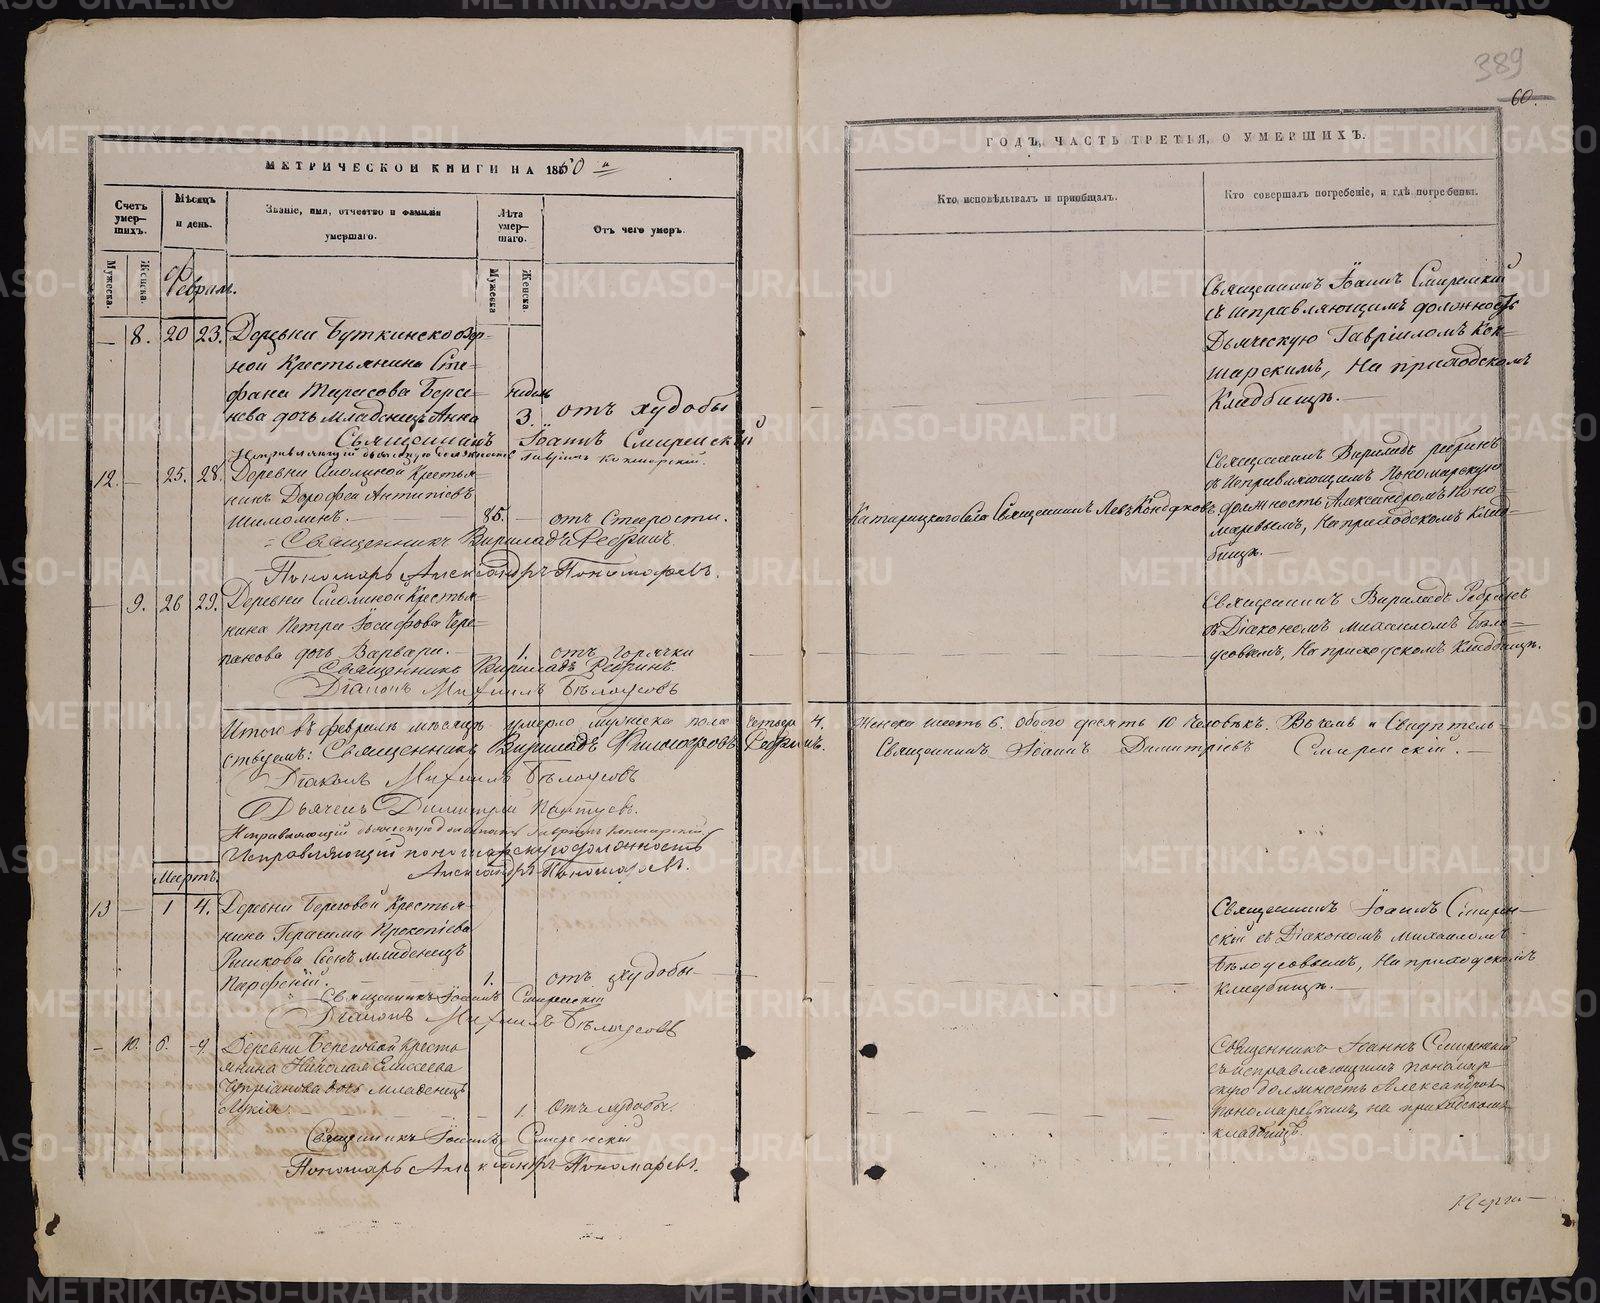 389
60.
МЕТРИЧЕСКОЙ КНИГИ НА 1860 й
ГОДЪ, ЧАСТЬ ТРЕТІЯ, О УМЕРШИХЪ.
Счетъ умер-шихъ.
Мѣсяцъ и день.
Званіе, имя, отчество и фамилія умершаго.
Лѣта умер-шаго.
Отъ чего умеръ.
Кто исповѣдывалъ и пріобщалъ.
Кто совершалъ погребеніе, и гдѣ погребены.
Мужеска.
Женска.
Мужеска
Женска
Феврал.
— 8. 20 23. Деревни Буткинско Зер-
ной Крестьянина Сте-
фана Тарасова Берсе-
нева дочь младенецъ Анна
недѣль
3. отъ худобы
Священникъ Іоаннъ Смиренскій
Исправляющій дьяческую должность Гавріилъ Кокшарскій.
Священникъ Іоаннъ Смиренскій
съ исправляющимъ должность
Дьяческую Гавріиломъ Кок-
шарскимъ, На приходскомъ
Кладбищѣ.
12. — 25. 28. Деревни Смолиной Крестья-
нинъ Дорофей Антипіевъ
Шимолинъ. — 85. — отъ Старости.
Священникъ Вириладъ Ребринъ
Пономарь Александръ Пономаревъ.
Катарацкаго Села Священникъ Левъ Кондаковъ
Священникъ Вириладъ Ребринъ
съ Исправляющимъ Пономарскую
должность Александромъ Поно-
маревымъ, На приходскомъ Клад-
бищѣ.
— 9. 26 29. Деревни Смолиной Крестья-
нина Петра Іосифова Чере-
панова дочь Варвара. 1. отъ Горячки
Священникъ Вириладъ Ребринъ.
Діаконъ Михаилъ Бѣлоусовъ
Священникъ Вириладъ Ребринъ
съ Діакономъ Михаиломъ Бѣло-
усовымъ, На приходскомъ Кладбищѣ.
Итого въ февралѣ мѣсяцѣ умерло мужеска пола четыре 4. Женска шесть 6. Обоего десять 10 Человѣкъ. Въ чемъ и Свидѣтель-
ствуемъ: Священникъ Вириладъ Ребринъ.
Священникъ Іоаннъ Димитріевъ Смиренскій.
Діаконъ Михаилъ Бѣлоусовъ
Дьячекъ Димитрій
Исправляющій дьяческую должность Гавріилъ Кокшарскій
Исправляющій пономарскую должность
Александръ Пономаревъ.
Мартъ.
13 — 1 4. Деревни Береговой Крестья-
нина Герасима Прокопіева
Рышкова Сынъ младенецъ
Парфеній. 1. — отъ худобы
Священникъ Іоаннъ Смиренскій
Діаконъ Михаилъ Бѣлоусовъ
Священникъ Іоаннъ Смирен-
скій съ Діакономъ Михаиломъ
Бѣлоусовымъ, На приходскомъ
Кладбищѣ.
— 10. 6. 9. Деревни Береговой Кресть
янина Николая Елисеева
Чупріанова дочь младенецъ
Лукія. 1. отъ худобы.
Священникъ Іоаннъ Смиренскій
Пономарь Александръ Пономаревъ.
Священникъ Іоаннъ Смиренскій
съ исправляющимъ пономар
скую должность Александромъ
Пономаревымъ, на приходскомъ
кладбищѣ.
METRIKI.GASO-URAL.RU